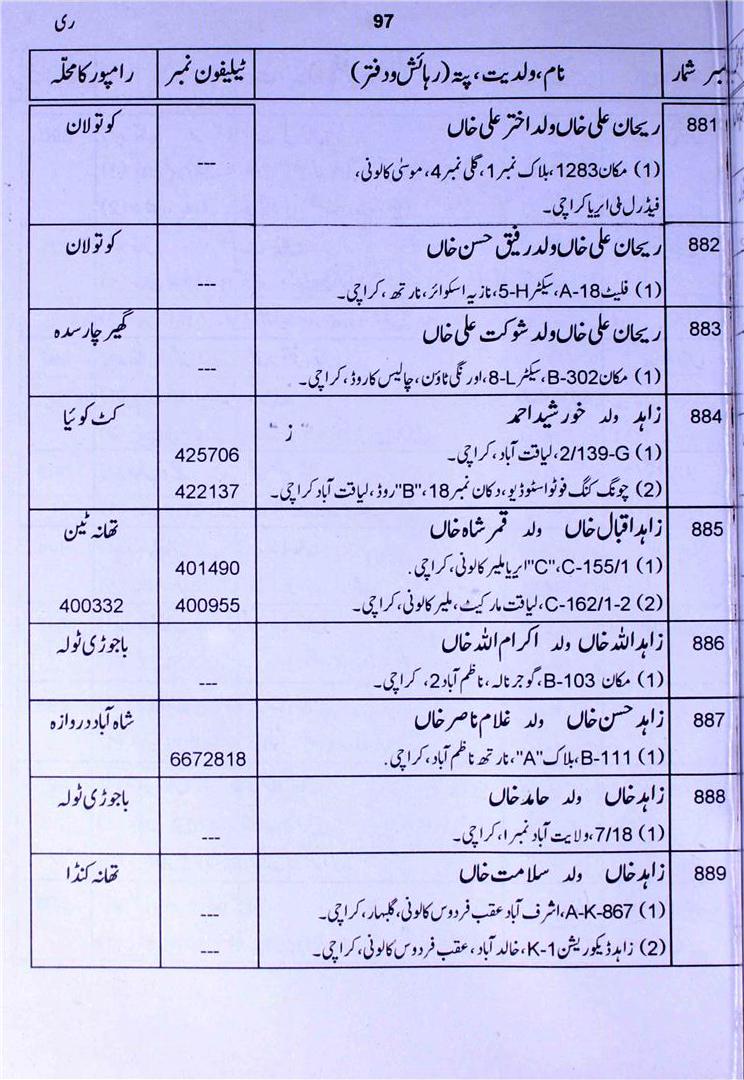 ری
97
نمبر شمار نام، ولدیت، پتہ (رہائش و دفتر) ٹیلیفون نمبر رامپور کا محلّہ
881 ریحان علی خاں ولد اختر علی خاں کوتولان
(1) مکان 1283، بلاک نمبر 1، گلی نمبر 4، موسیٰ کالونی، ---
فیڈرل بی ایریا کراچی۔
882 ریحان علی خاں ولد رفیق حسن خاں کوتولان
(1) فلیٹ A-18، سیکٹر 5-H، نازیہ اسکوائر، نارتھ، کراچی۔ ---
883 ریحان علی خاں ولد شوکت علی خاں گھیر چارسدہ
(1) مکان B-302، سیکٹر 8-L، اورنگی ٹاؤن، چالیس کا روڈ، کراچی۔ ---
884 زاہد ولد خورشید احمد کٹ کوئیا
"ز"
(1) 2/139-G، لیاقت آباد، کراچی۔ 425706
(2) چونگ کنگ فوٹو اسٹوڈیو، دکان نمبر 18، "B" روڈ، لیاقت آباد کراچی۔ 422137
885 زاہد اقبال خاں ولد قمر شاہ خاں تھانہ ٹین
(1) C-155/1، "C" ایریا ملیر کالونی، کراچی. 401490
(2) C-162/1-2، لیاقت مارکیٹ، ملیر کالونی، کراچی۔ 400955 400332
886 زاہد اللہ خاں ولد اکرام اللہ خاں باجوڑی ٹولہ
(1) مکان B-103، گوجر نالہ، ناظم آباد 2، کراچی۔ ---
887 زاہد حسن خاں ولد غلام ناصر خاں شاہ آباد دروازہ
(1) B-111، بلاک "A"، نارتھ ناظم آباد، کراچی. 6672818
888 زاہد خاں ولد حامد خاں باجوڑی ٹولہ
(1) 7/18، ولایت آباد نمبر ۱، کراچی۔ ---
889 زاہد خاں ولد سلامت خاں تھانہ کنڈا
(1) A-K-867، اشرف آباد عقب فردوس کالونی، گلبہار، کراچی۔ ---
(2) زاہد ڈیکوریشن K-1، خالد آباد، عقب فردوس کالونی، کراچی۔ ---